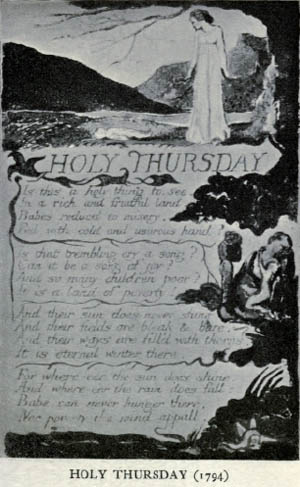 HOLY THURSDAY
Is this a holy thing to see.
In a rich and fruitful land.
Babes reduced to misery.
Fed with cold and usurous hand?
Is that trembling cry a song?
Can it be a song of joy?
And so many children poor?
It is a land of poverty!
And their sun does never shine.
And their fields are bleak & bare.
And their ways are fill'd with thorns
It is eternal winter there.
For where-e'er the sun does shine.
And where-e'er the rain does fall:
Babe can never hunger there.
Nor poverty the mind appall.
HOLY THURSDAY (1794)